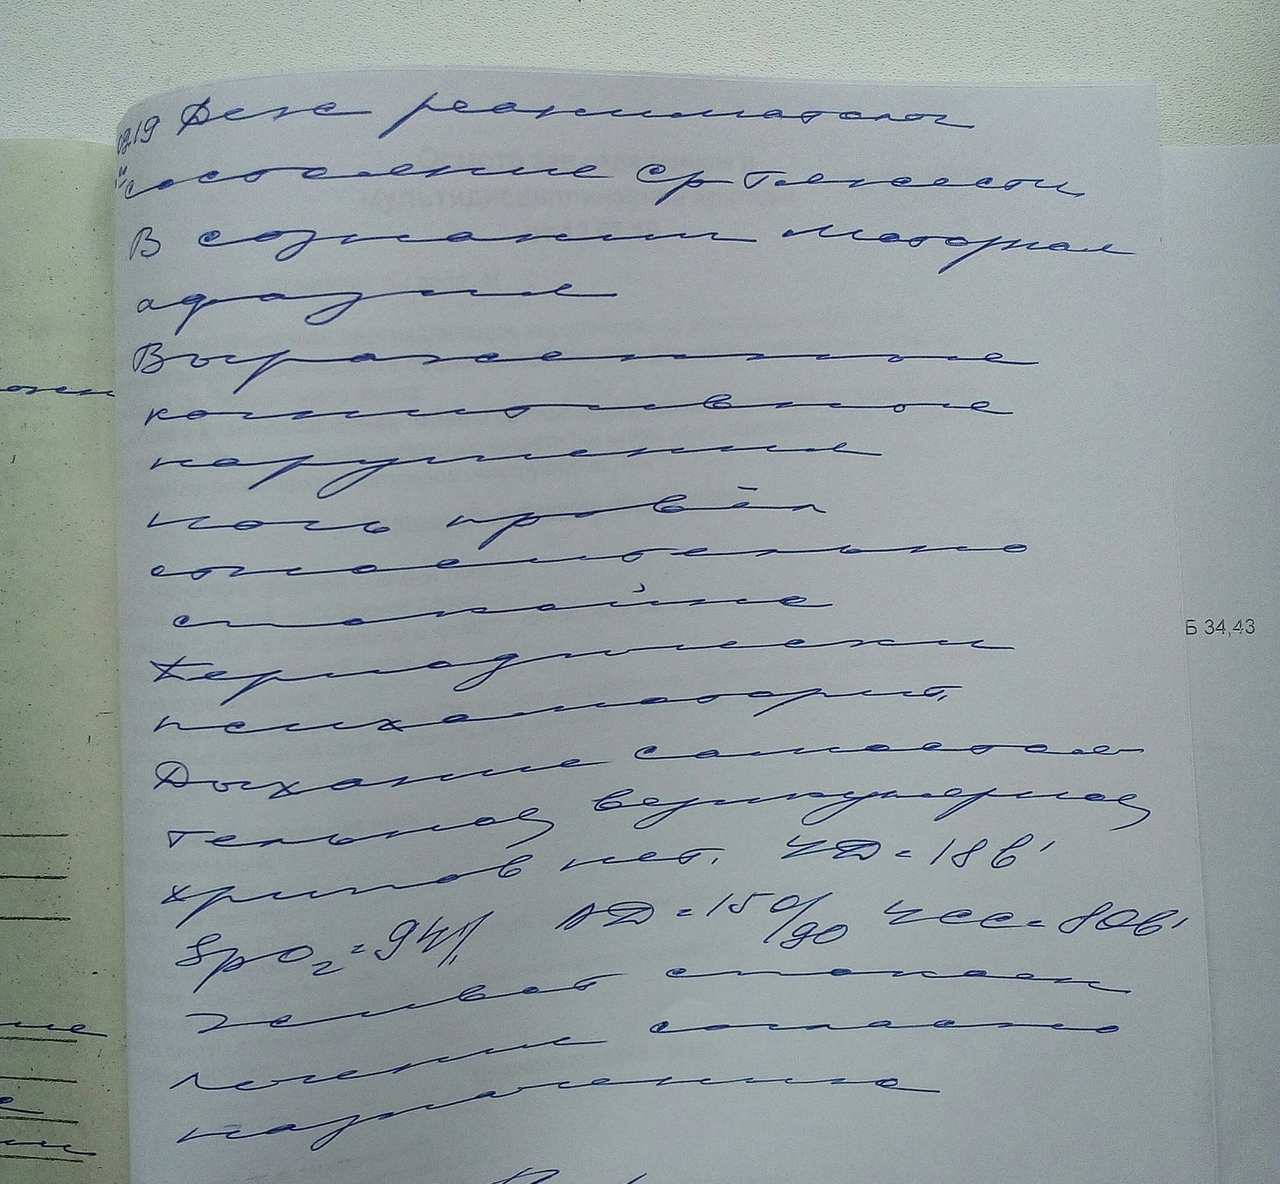 02.19 Деж реаниматолог
состояние ср тяжести
В сознании Моторная
афазия
Выраженные
когнитивные
нарушения
ночь провёл
относительно
спокойно
Периодически
психомоторн.
Дыхание самостоя
тельное, везикулярное,
хрипов нет. ЧД = 18 в'
SpO2 = 94% АД = 150/90 ЧСС = 80 в'
Живот спокоен
лечение согласно
назначению
Б 34,43